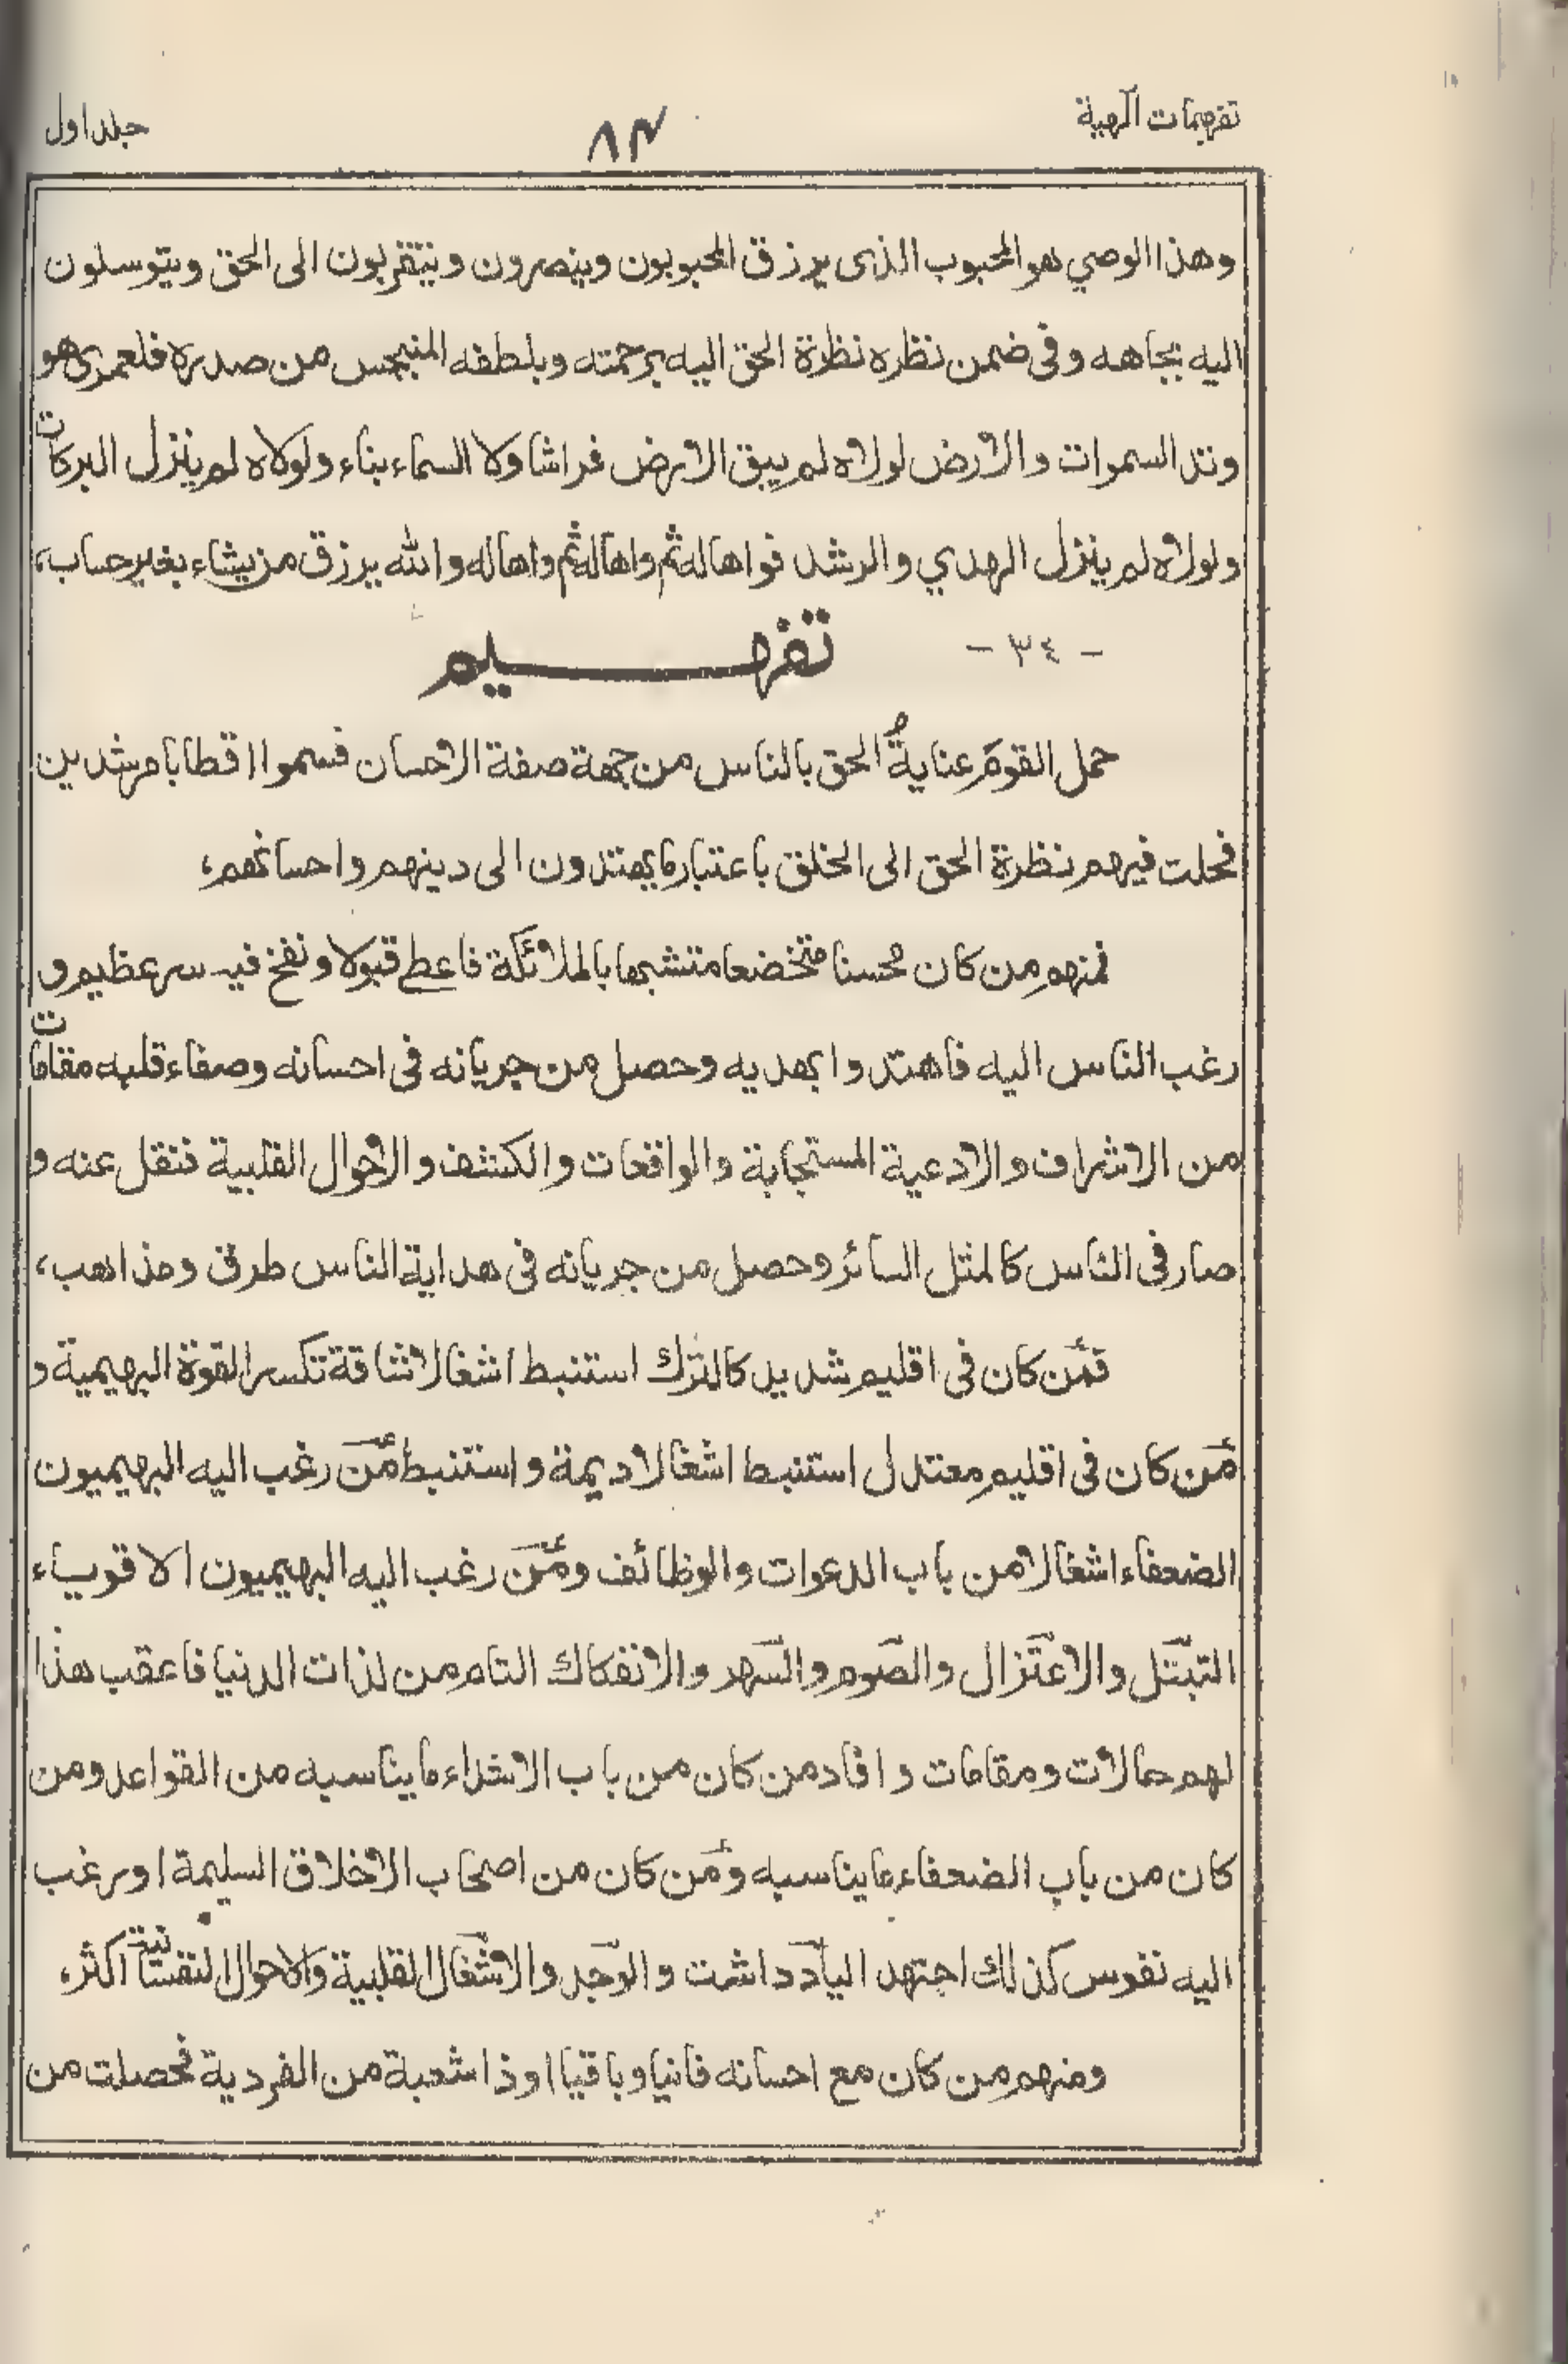 تفهيمات الٰهية ٨٣ جلد اول
وهذا الوصي هو المحبوب الذى يرزق المحبوبون وينصرون ويتقربون الى الحق ويتوسلون
اليه بجاهه وفى ضمن نظره نظرة الحق اليه برحمته وبلطفه المنبجس من صدره فلعمرى هو
وتد السموات والارض لولاه لم يبق الارض فراشا ولا السماء بناء ولولاه لم ينزل البركات
ولولاه لم ينزل الهدي والرشد فواها له ثم واها له ثم واها له والله يرزق من يشاء بغير حساب،
- ٣٤ - تفهــــيم
حمل القومَ عنايةُ الحق بالناس من جهة صفة الاحسان فسموا اقطابا مرشدين
فحلت فيهم نظرة الحق الى الخلق باعتبار ما يهتدون الى دينهم واحسانهم،
فمنهم من كان محسنا متخضعا متشبها بالملائكة فاعطى قبولا ونفخ فيه سر عظيم و
رغب الناس اليه فاهتدوا بهديه وحصل من جريانه فى احسانه وصفاء قلبه مقامات
من الاشراف والادعية المستجابة والواقعات والكشف والاحوال القلبية فنقل عنه و
صار فى الناس كالمثل السائر وحصل من جريانه فى هداية الناس طرق ومذاهب،
فمَن كان فى اقليم شديد كالترك استنبط اشغالا شاقة تكسر القوة البهيمية و
مَن كان فى اقليم معتدل استنبط اشغالا ديمة واستنبط مَن رغب اليه البهيميون
الضعفاء اشغالا من باب الدعوات والوظائف ومَن رغب اليه البهيميون الاقوياء
التبتّل والاعتزال والصوم والسهر والانفكاك التام من لذات الدنيا فاعقب هذا
لهم حالات ومقامات وافاد من كان من باب الاشداء ما يناسبه من القواعد ومن
كان من باب الضعفاء ما يناسبه ومَن كان من اصحاب الاخلاق السليمة او رغب
اليه نفوس كذلك اجتهد اليادداشت والوجد والاشغال القلبية والاحوال النفسانية اكثر،
ومنهم من كان مع احسانه فانيا وباقيا او ذا شعبة من الفردية فحصلت من